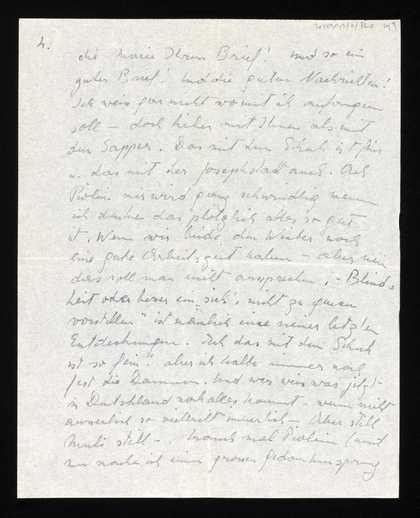 4.
die Marie Ihren Brief! und so ein
guter Brief! und die guten Nachrichten!
Ich weis gar nicht womit ich anfangen
soll – doch lieber mit Ihnen als mit
dem Sapper. Das mit dem Stück ist fein
u. das mit der Josephstadt auch. Ach
mir wird ganz schwindlig wenn
ich denke das plötzlich alles so gut
ist. Wenn wir beide den Winter noch
eine gute Arbeitszeit haben – aber nein
das soll man nicht aussprechen, – Blind-
heit oder besser ein "sich nicht zu genau
vorstellen" ist nämlich eine meiner letzten
Entdeckungen. Ich das mit dem Stück
ist so fein! aber ich halte immer noch
fest die Daumen. Und wer weis was jetzt
in Deutschland noch alles kommt – wenn nicht
so vielleicht – Aber still
still –. mal (und
nun mache ich einen grossen Gedankensprung